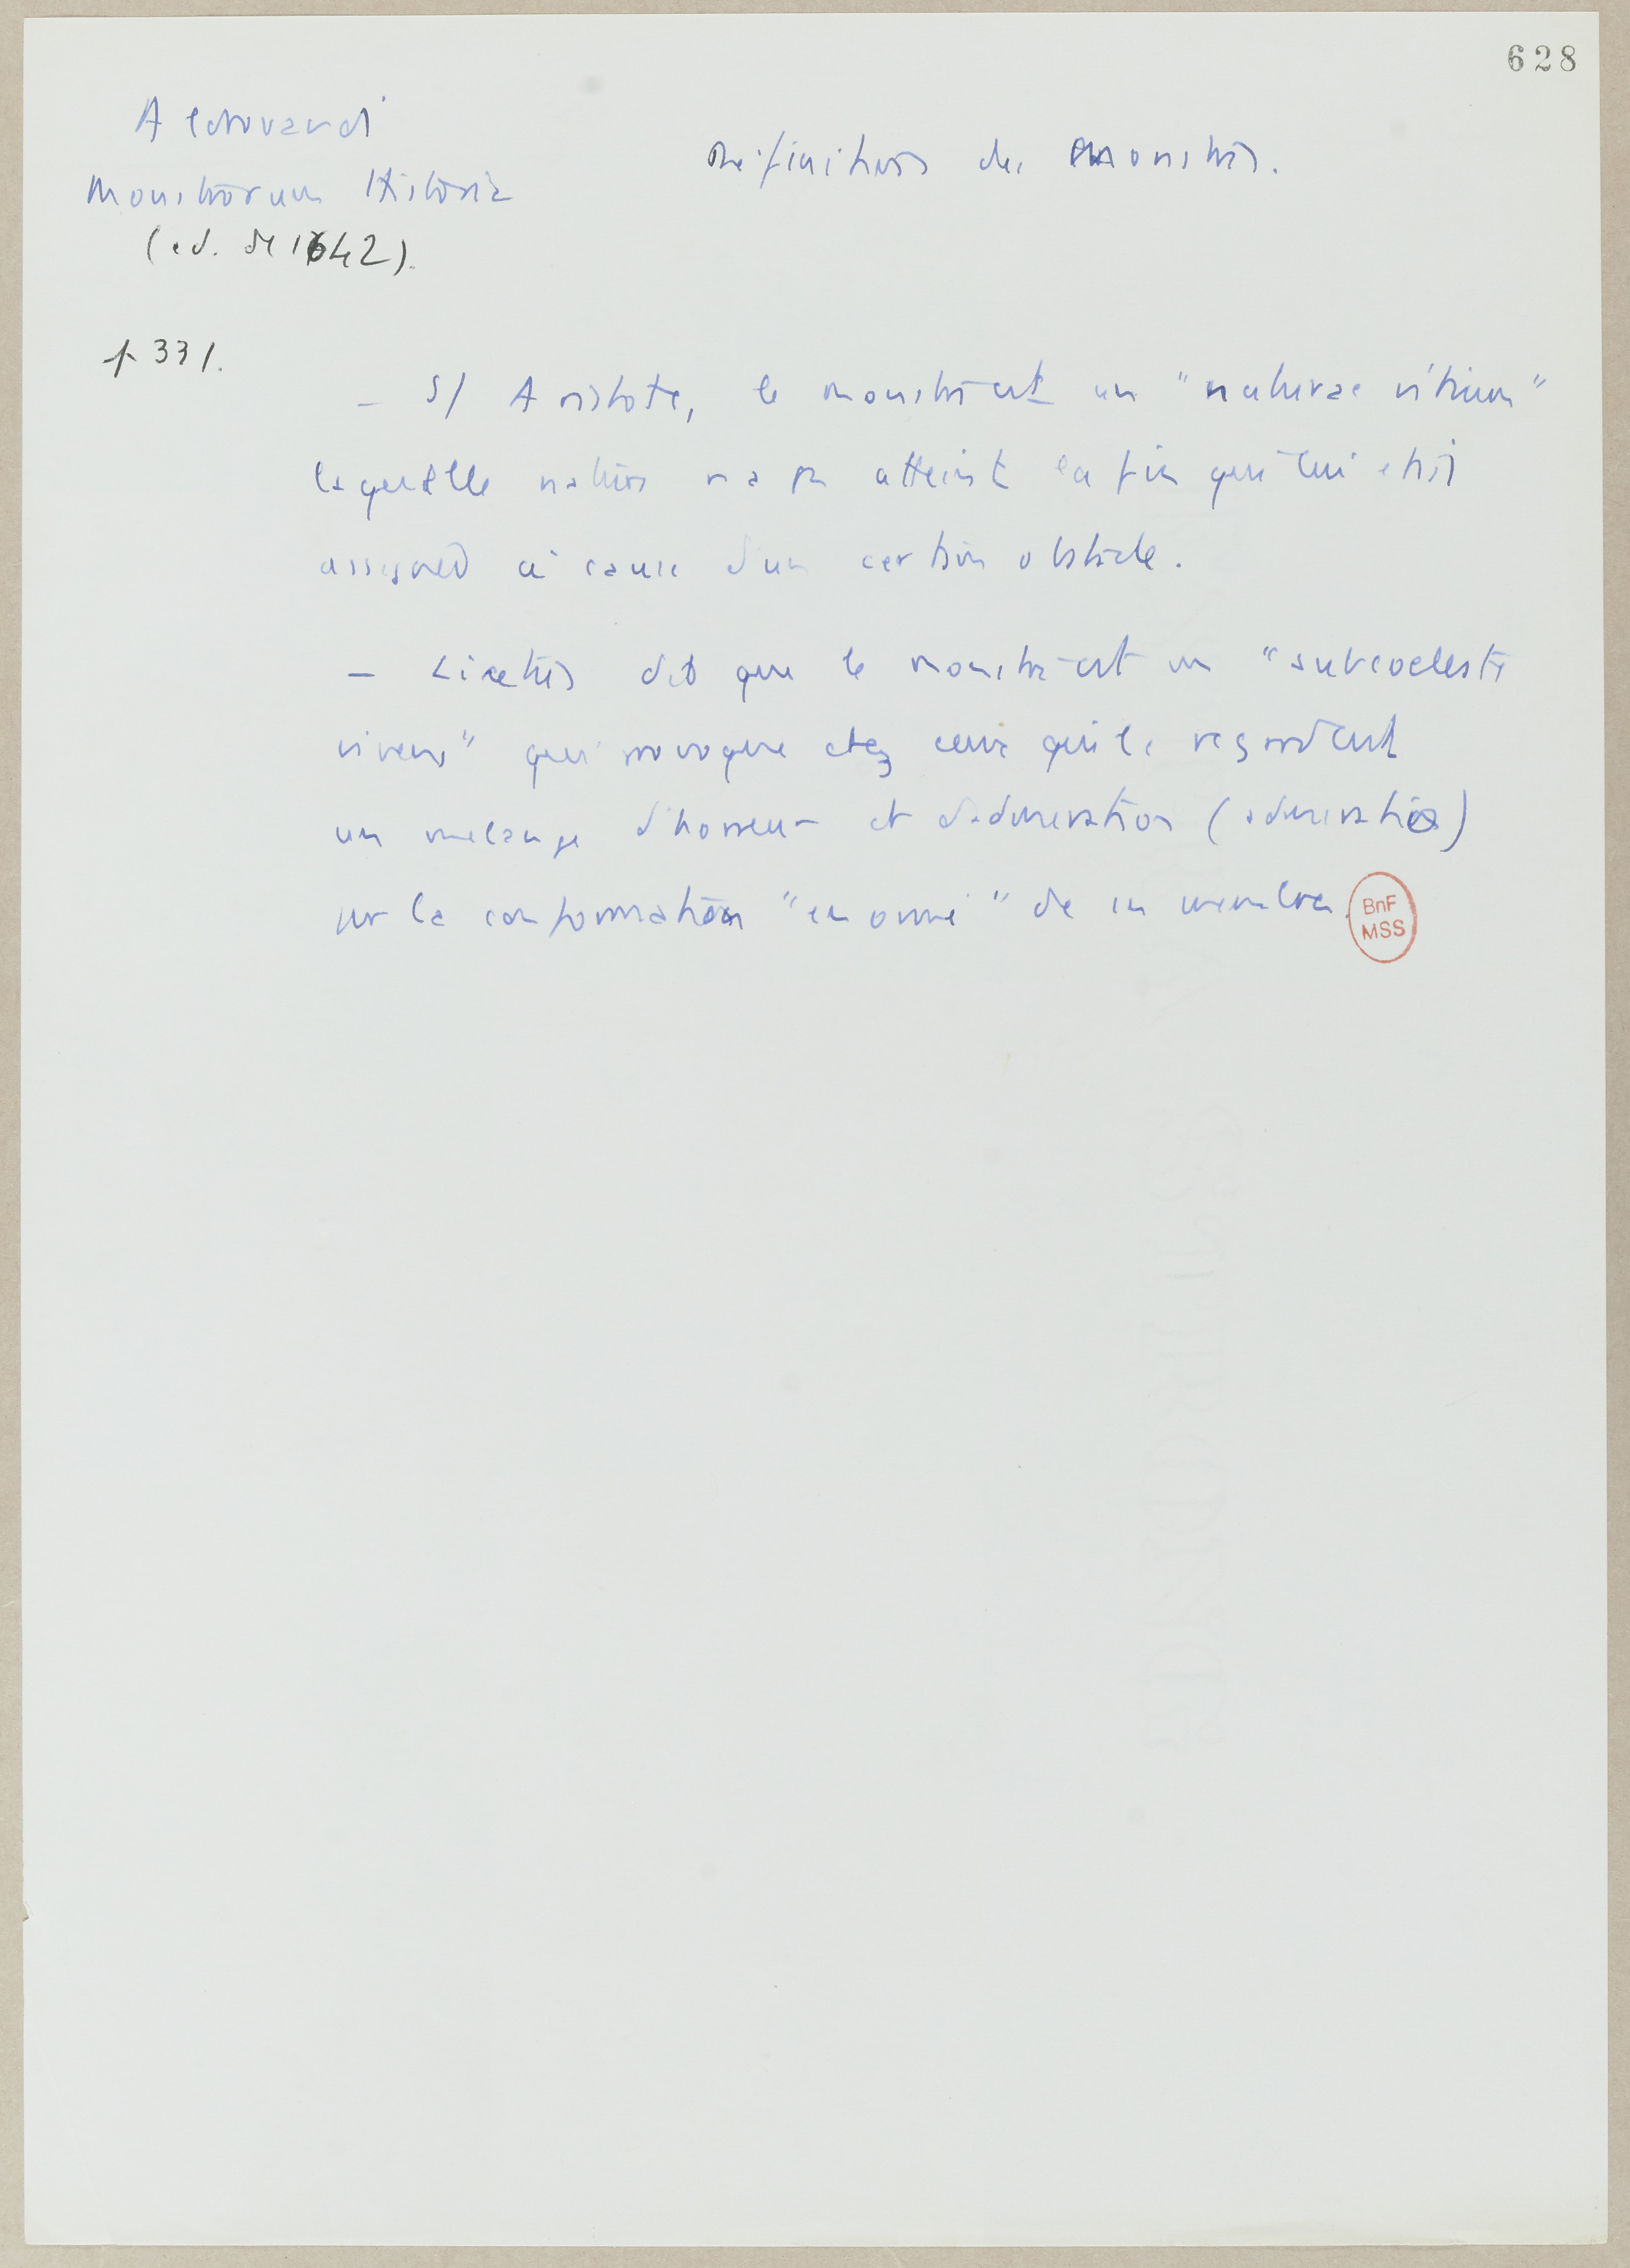 628
Aldrovandi
Monstrorum Historia
(ed. de 1642).
Définitions des monstres.
p 331.
— S/ Aristote, le monstre est un "naturae vitium"
laquelle nature n'a pu atteindre la fin qui lui était
assignée à cause d'un certain obstacle.
— Licetus dit que le monstre est un "subcoeleste
vivens" qui provoque chez ceux qui le regardent
un mélange d'horreur et d'admiration (admiratio)
par la conformation "enorme" de ses membres.
BnF
MSS